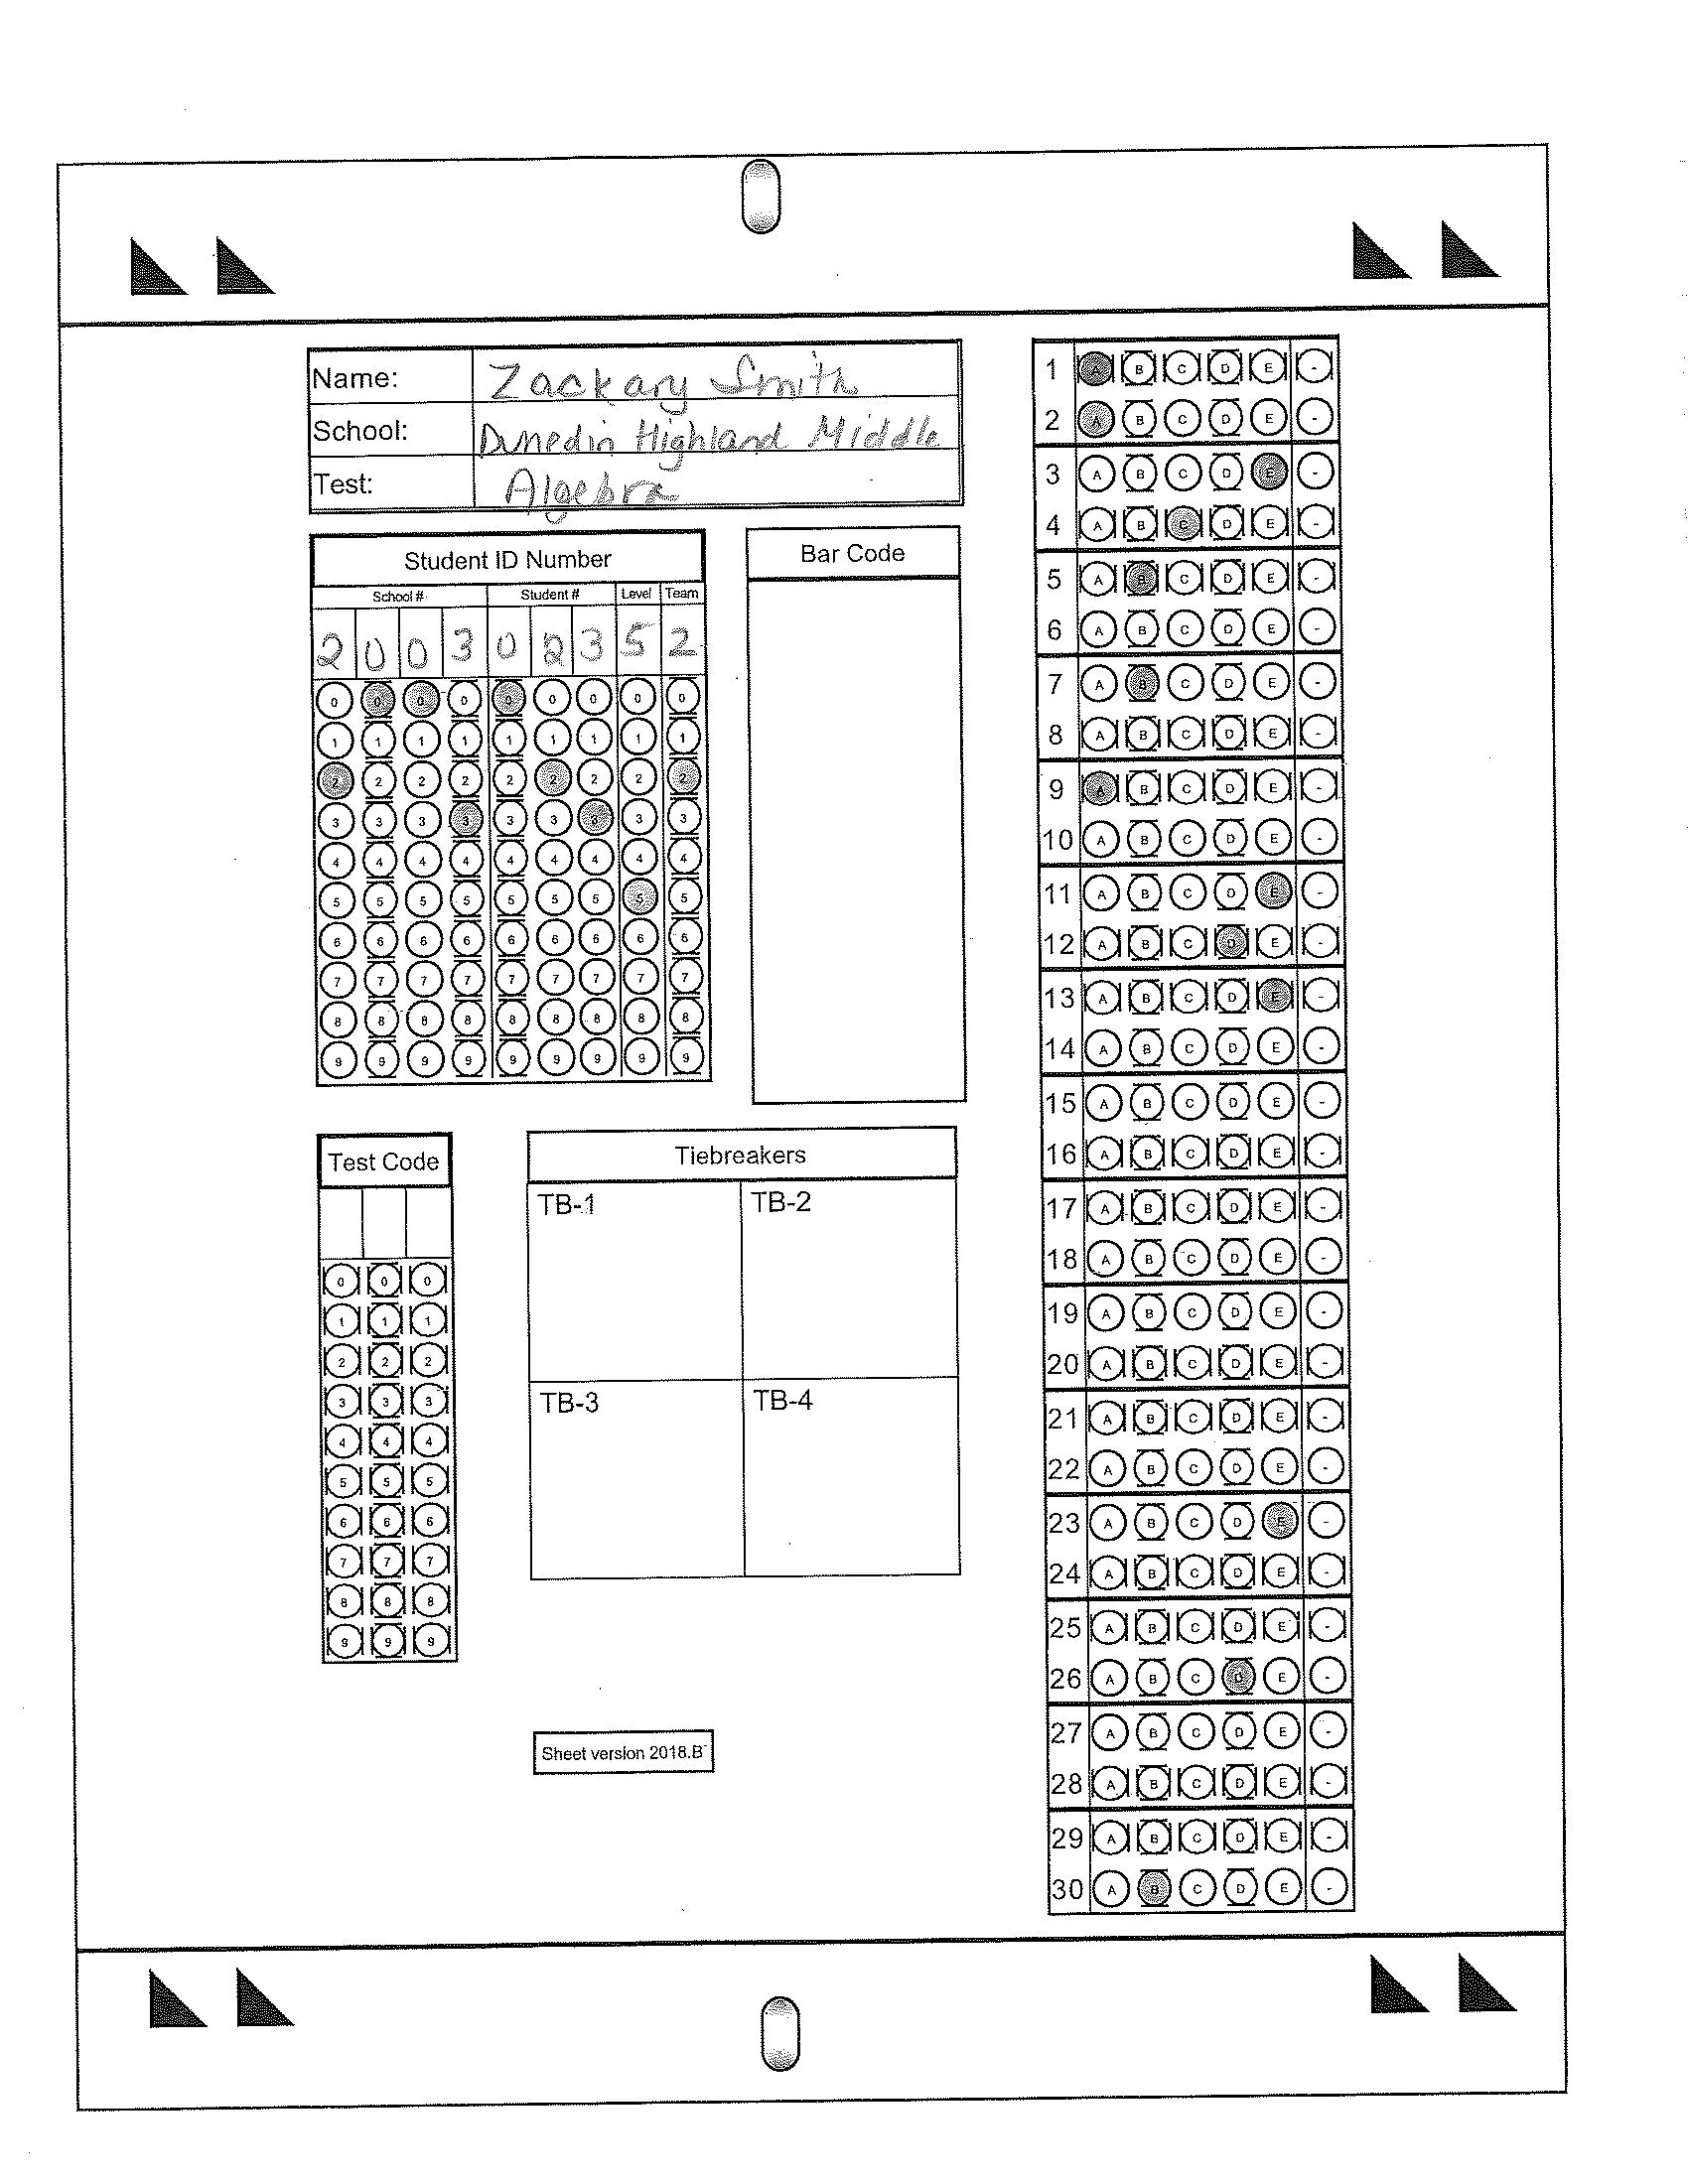 Name: Zackary Smith
School: Dunedin Highland Middle
Test: Algebra
Student ID Number
School # Student # Level Team
2 0 0 3 0 2 3 5 2
0 0 0 0 0 0 0 0 0
1 1 1 1 1 1 1 1 1
2 2 2 2 2 2 2 2 2
3 3 3 3 3 3 3 3 3
4 4 4 4 4 4 4 4 4
5 5 5 5 5 5 5 5 5
6 6 6 6 6 6 6 6 6
7 7 7 7 7 7 7 7 7
8 8 8 8 8 8 8 8 8
9 9 9 9 9 9 9 9 9
Bar Code
Test Code
0 0 0
1 1 1
2 2 2
3 3 3
4 4 4
5 5 5
6 6 6
7 7 7
8 8 8
9 9 9
Tiebreakers
TB-1 TB-2
TB-3 TB-4
Sheet version 2018.B
1 A B C D E -
2 A B C D E -
3 A B C D E -
4 A B C D E -
5 A B C D E -
6 A B C D E -
7 A B C D E -
8 A B C D E -
9 A B C D E -
10 A B C D E -
11 A B C D E -
12 A B C D E -
13 A B C D E -
14 A B C D E -
15 A B C D E -
16 A B C D E -
17 A B C D E -
18 A B C D E -
19 A B C D E -
20 A B C D E -
21 A B C D E -
22 A B C D E -
23 A B C D E -
24 A B C D E -
25 A B C D E -
26 A B C D E -
27 A B C D E -
28 A B C D E -
29 A B C D E -
30 A B C D E -